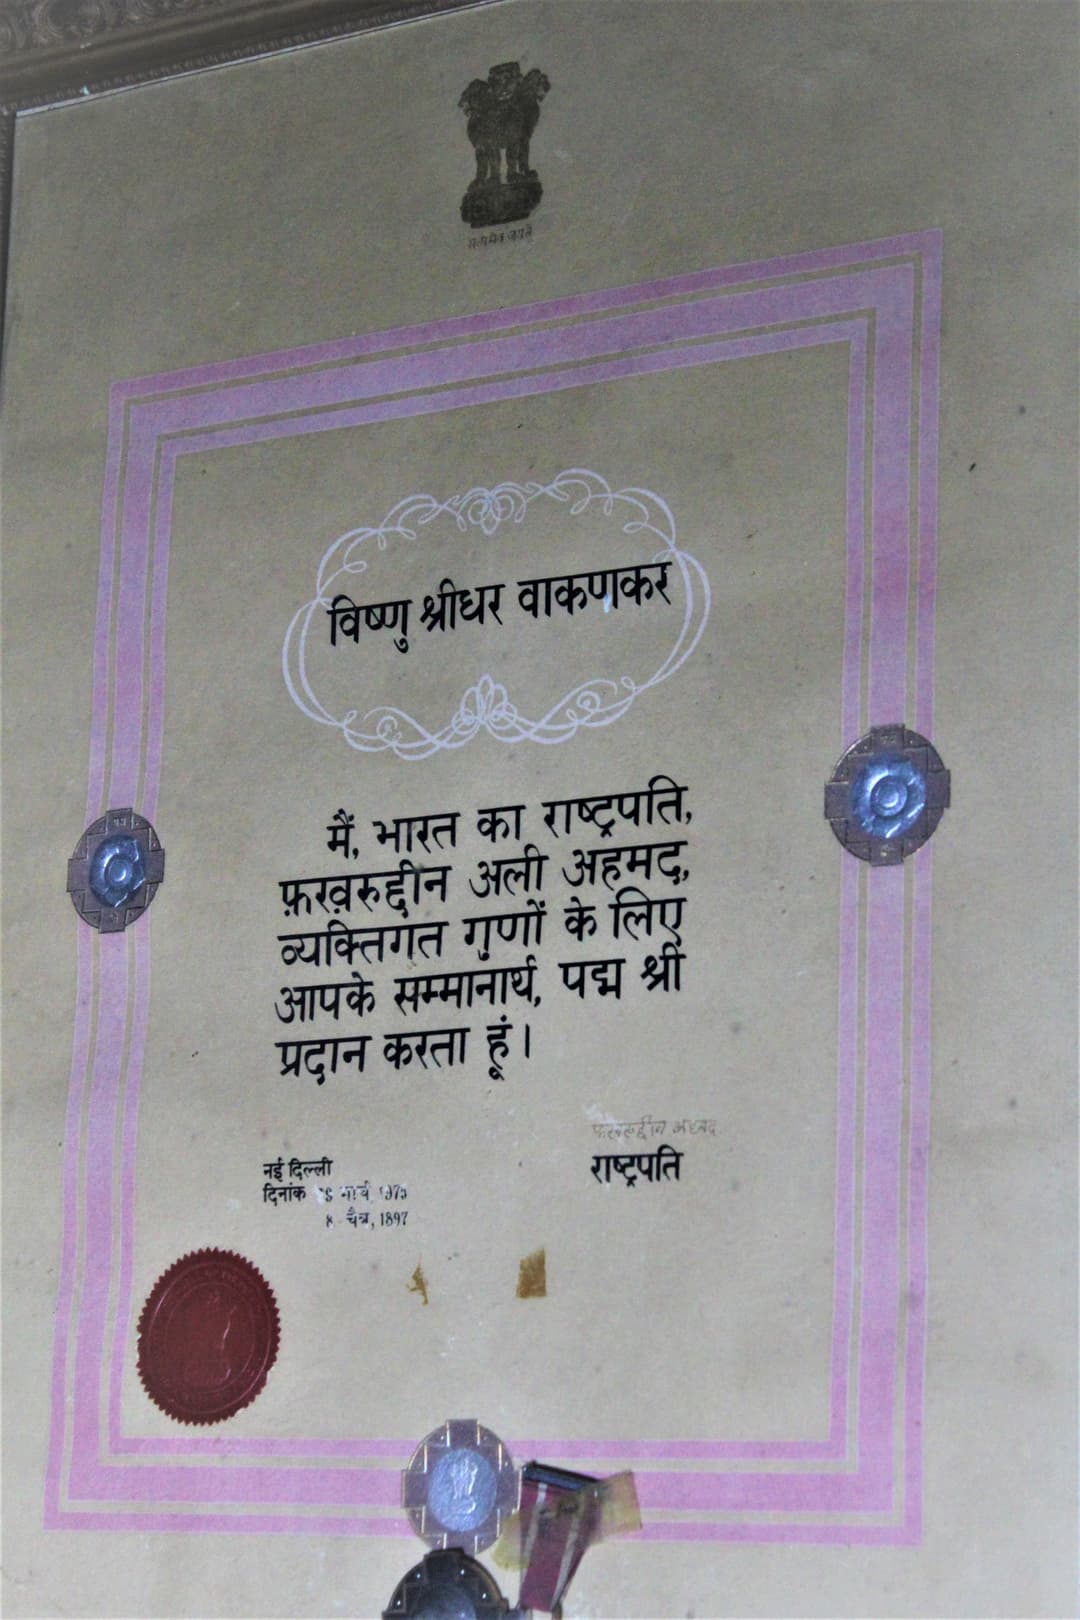 सत्यमेव जयते
विष्णु श्रीधर वाकणकर
मैं, भारत का राष्ट्रपति,
फ़ख़रुद्दीन अली अहमद,
व्यक्तिगत गुणों के लिए
आपके सम्मानार्थ, पद्म श्री
प्रदान करता हूं।
राष्ट्रपति
नई दिल्ली
दिनांक मार्च 1975
चैत्र, 1897